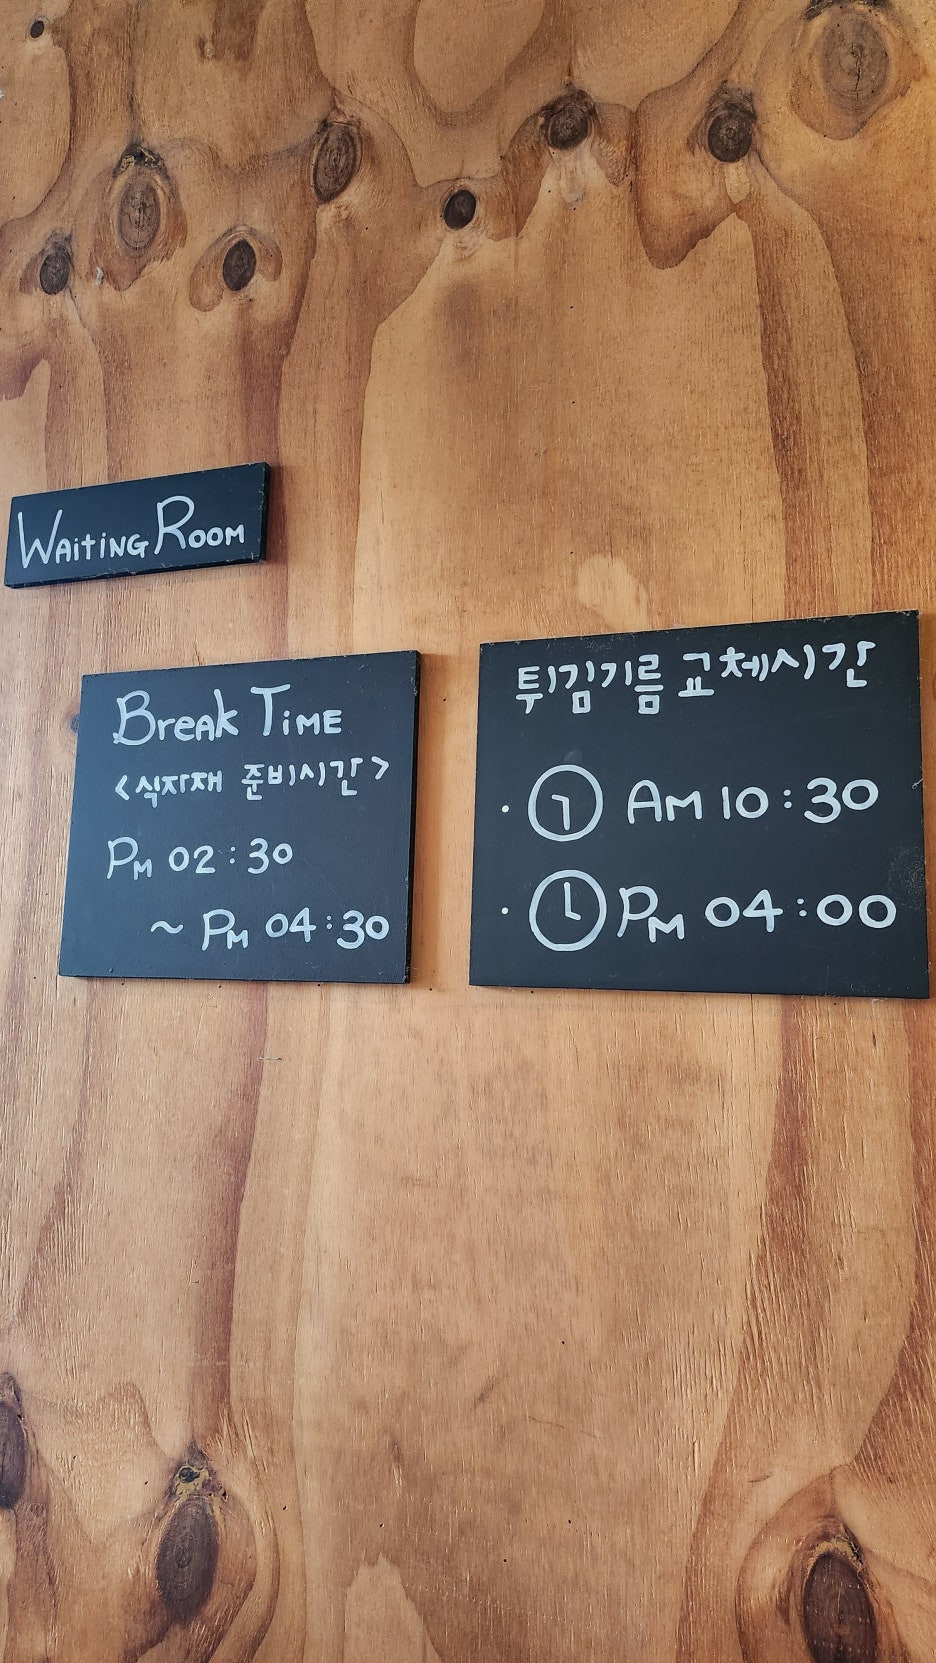 Waiting Room
Break Time
<식자재 준비시간>
PM 02:30
~ PM 04:30
튀김기름 교체시간
· AM 10:30
· PM 04:00